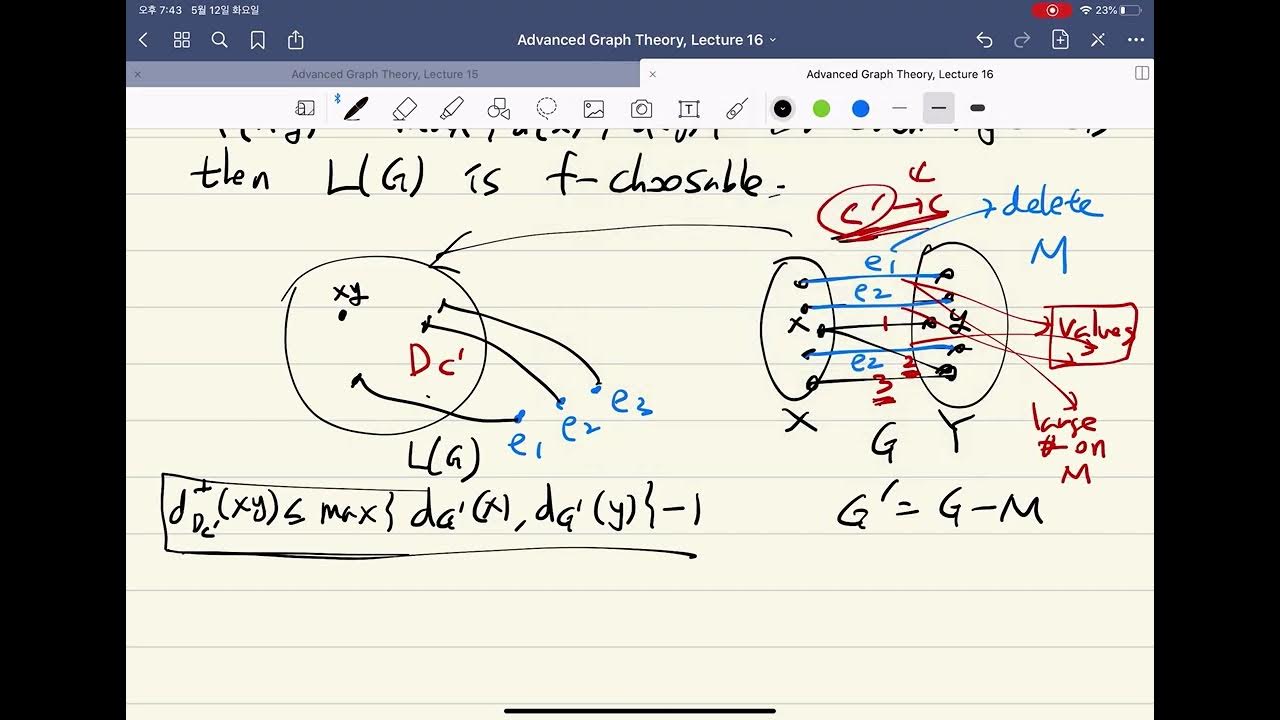 오후 7:43 5월 12일 화요일
23%
Advanced Graph Theory, Lecture 16
Advanced Graph Theory, Lecture 15
Advanced Graph Theory, Lecture 16
then L(G) is f-choosable.
c' → c
delete
M
e1
e2
1
e2
2
3
x
y
values
large # on M
X
G
Y
xy
Dc'
e1
e2
e3
L(G)
d⁺Dc'(xy) ≤ max{ dG'(x), dG'(y) } - 1
G' = G - M